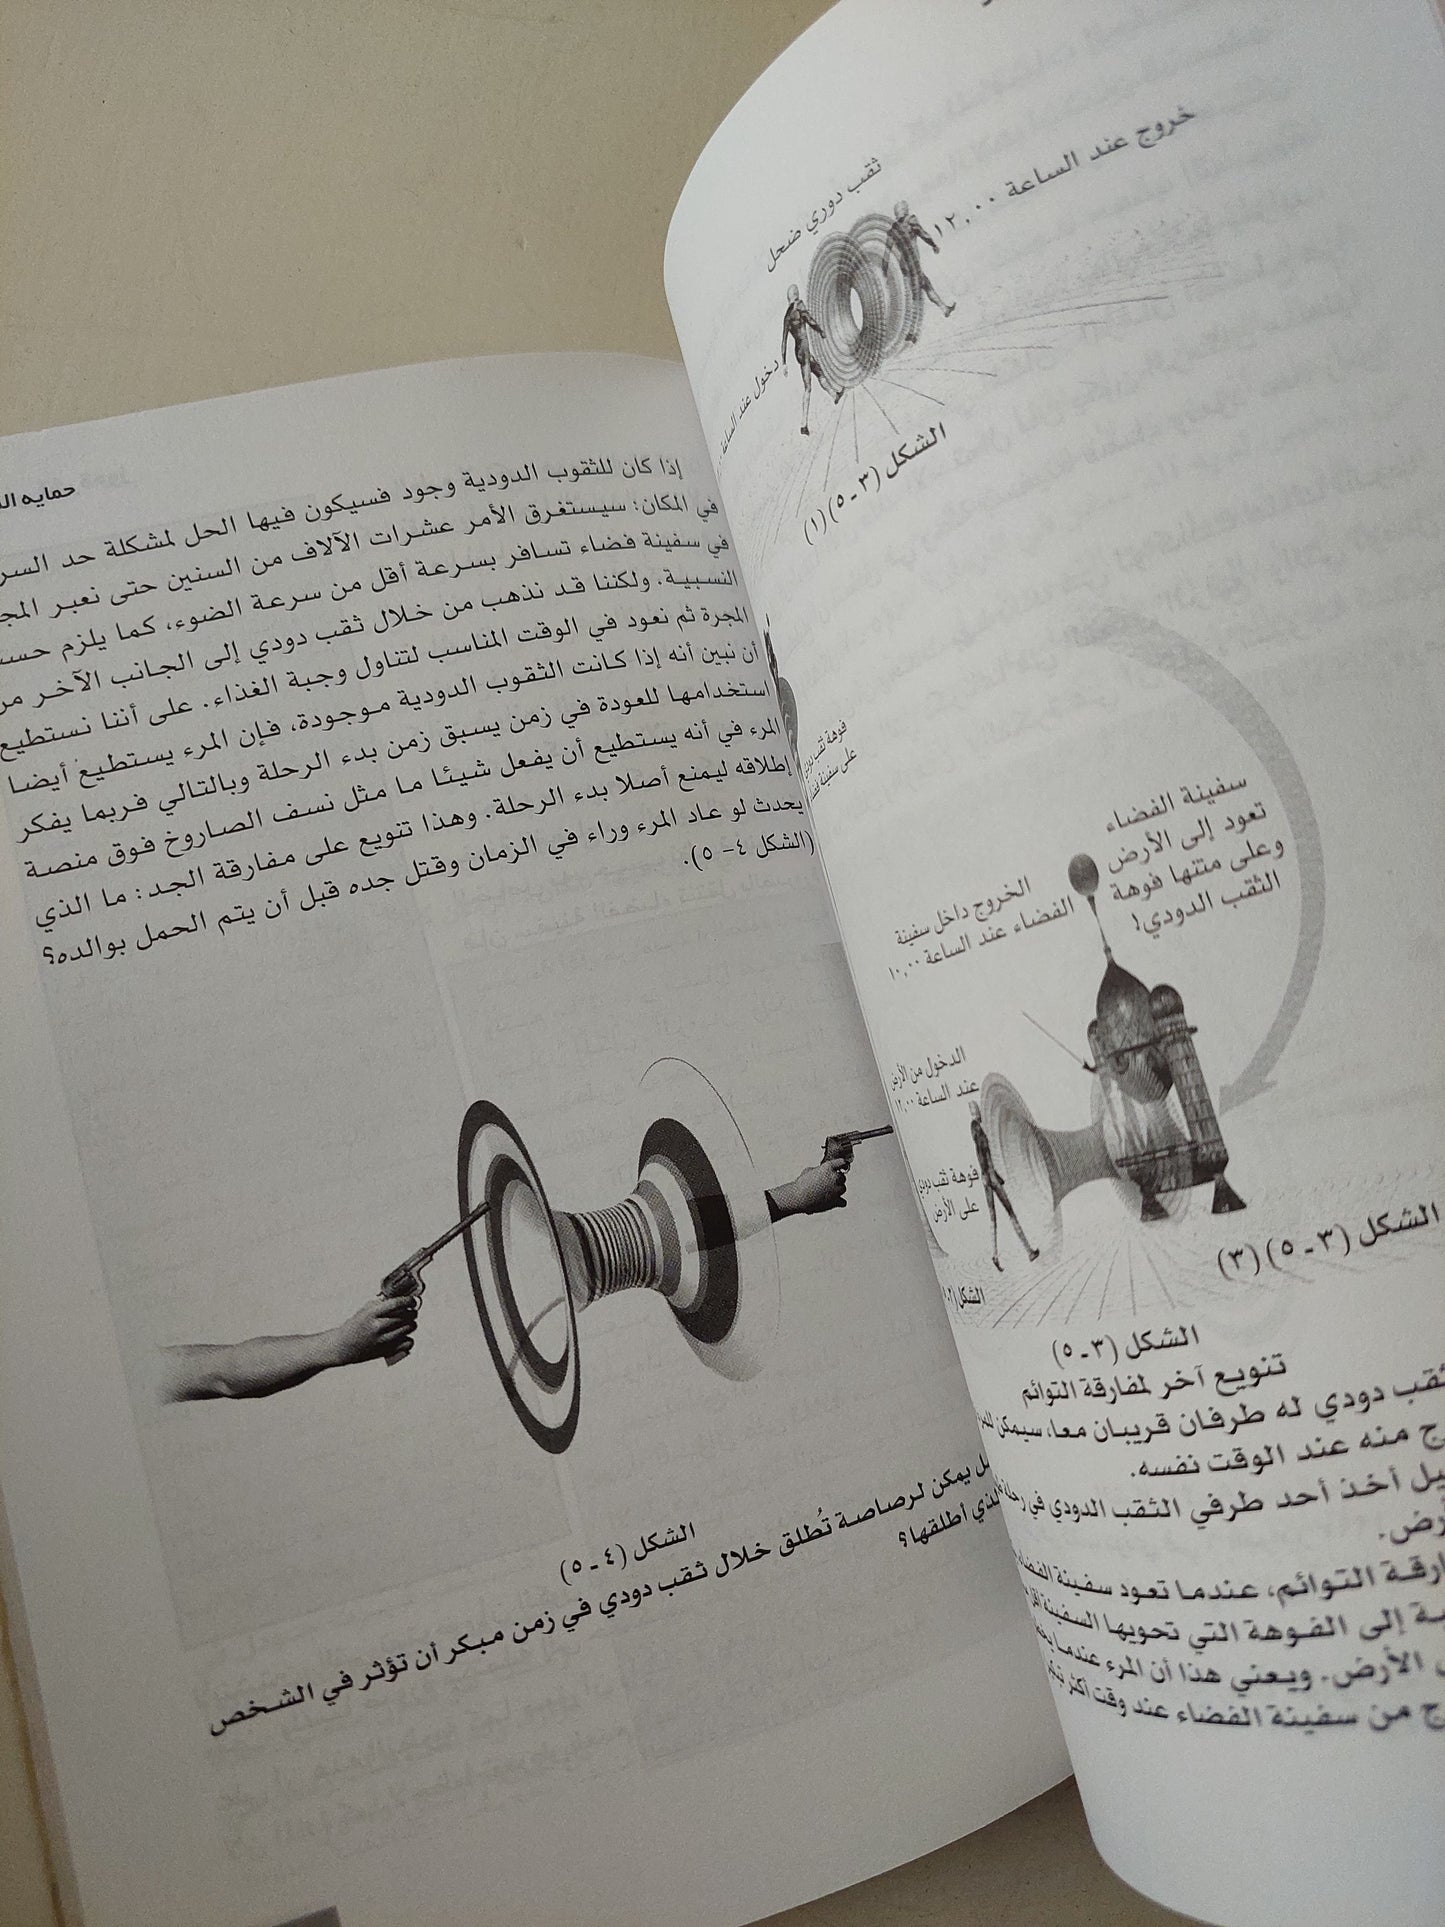 ثقب دوري ضحل
خروج عند الساعة ١٢,٠٠
دخول عند الساعة
الشكل (٣ ـ ٥)(١)
فوهة ثقب دودي
على سفينة
سفينة الفضاء
تعود إلى الأرض
وعلى متنها فوهة
الثقب الدودي!
الخروج داخل سفينة
الفضاء عند الساعة ١٠,٠٠
الدخول من الأرض
عند الساعة ١٢,٠٠
فوهة ثقب دودي
على الأرض
الشكل
الشكل (٣ ـ ٥) (٣)
الشكل (٣ ـ ٥)
تنويع آخر لمفارقة التوائم
ثقب دودي له طرفان قريبان معا، سيمكن
منه عند الوقت نفسه.
أخذ أحد طرفي الثقب الدودي في
التوائم، عندما تعود سفينة
إلى الفوهة التي تحويها السفينة
الأرض. ويعني هذا أن المرء عندما
من سفينة الفضاء عند وقت أكثر
حمايه
إذا كان للثقوب الدودية وجود فسيكون فيها الحل لمشكلة حد
في المكان: سيستغرق الأمر عشرات الآلاف من السنين حتى نعبر
في سفينة فضاء تسافر بسرعة أقل من سرعة الضوء، كما يلزم
النسبية. ولكننا قد نذهب من خلال ثقب دودي إلى الجانب الآخر
المجرة ثم نعود في الوقت المناسب لتناول وجبة الغذاء. على أننا نستطيع
أن نبين أنه إذا كانت الثقوب الدودية موجودة، فإن المرء يستطيع أيضا
استخدامها للعودة في زمن يسبق زمن بدء الرحلة وبالتالي فربما يفكر
المرء في أنه يستطيع أن يفعل شيئا ما مثل نسف الصاروخ فوق منصة
إطلاقه ليمنع أصلا بدء الرحلة. وهذا تنويع على مفارقة الجد: ما الذي
يحدث لو عاد المرء وراء في الزمان وقتل جده قبل أن يتم الحمل بوالده؟
(الشكل ٤- ٥).
الشكل (٤ ـ ٥)
يمكن لرصاصة تُطلق خلال ثقب دودي في زمن مبكر أن تؤثر في الشخص
الذي أطلقها؟